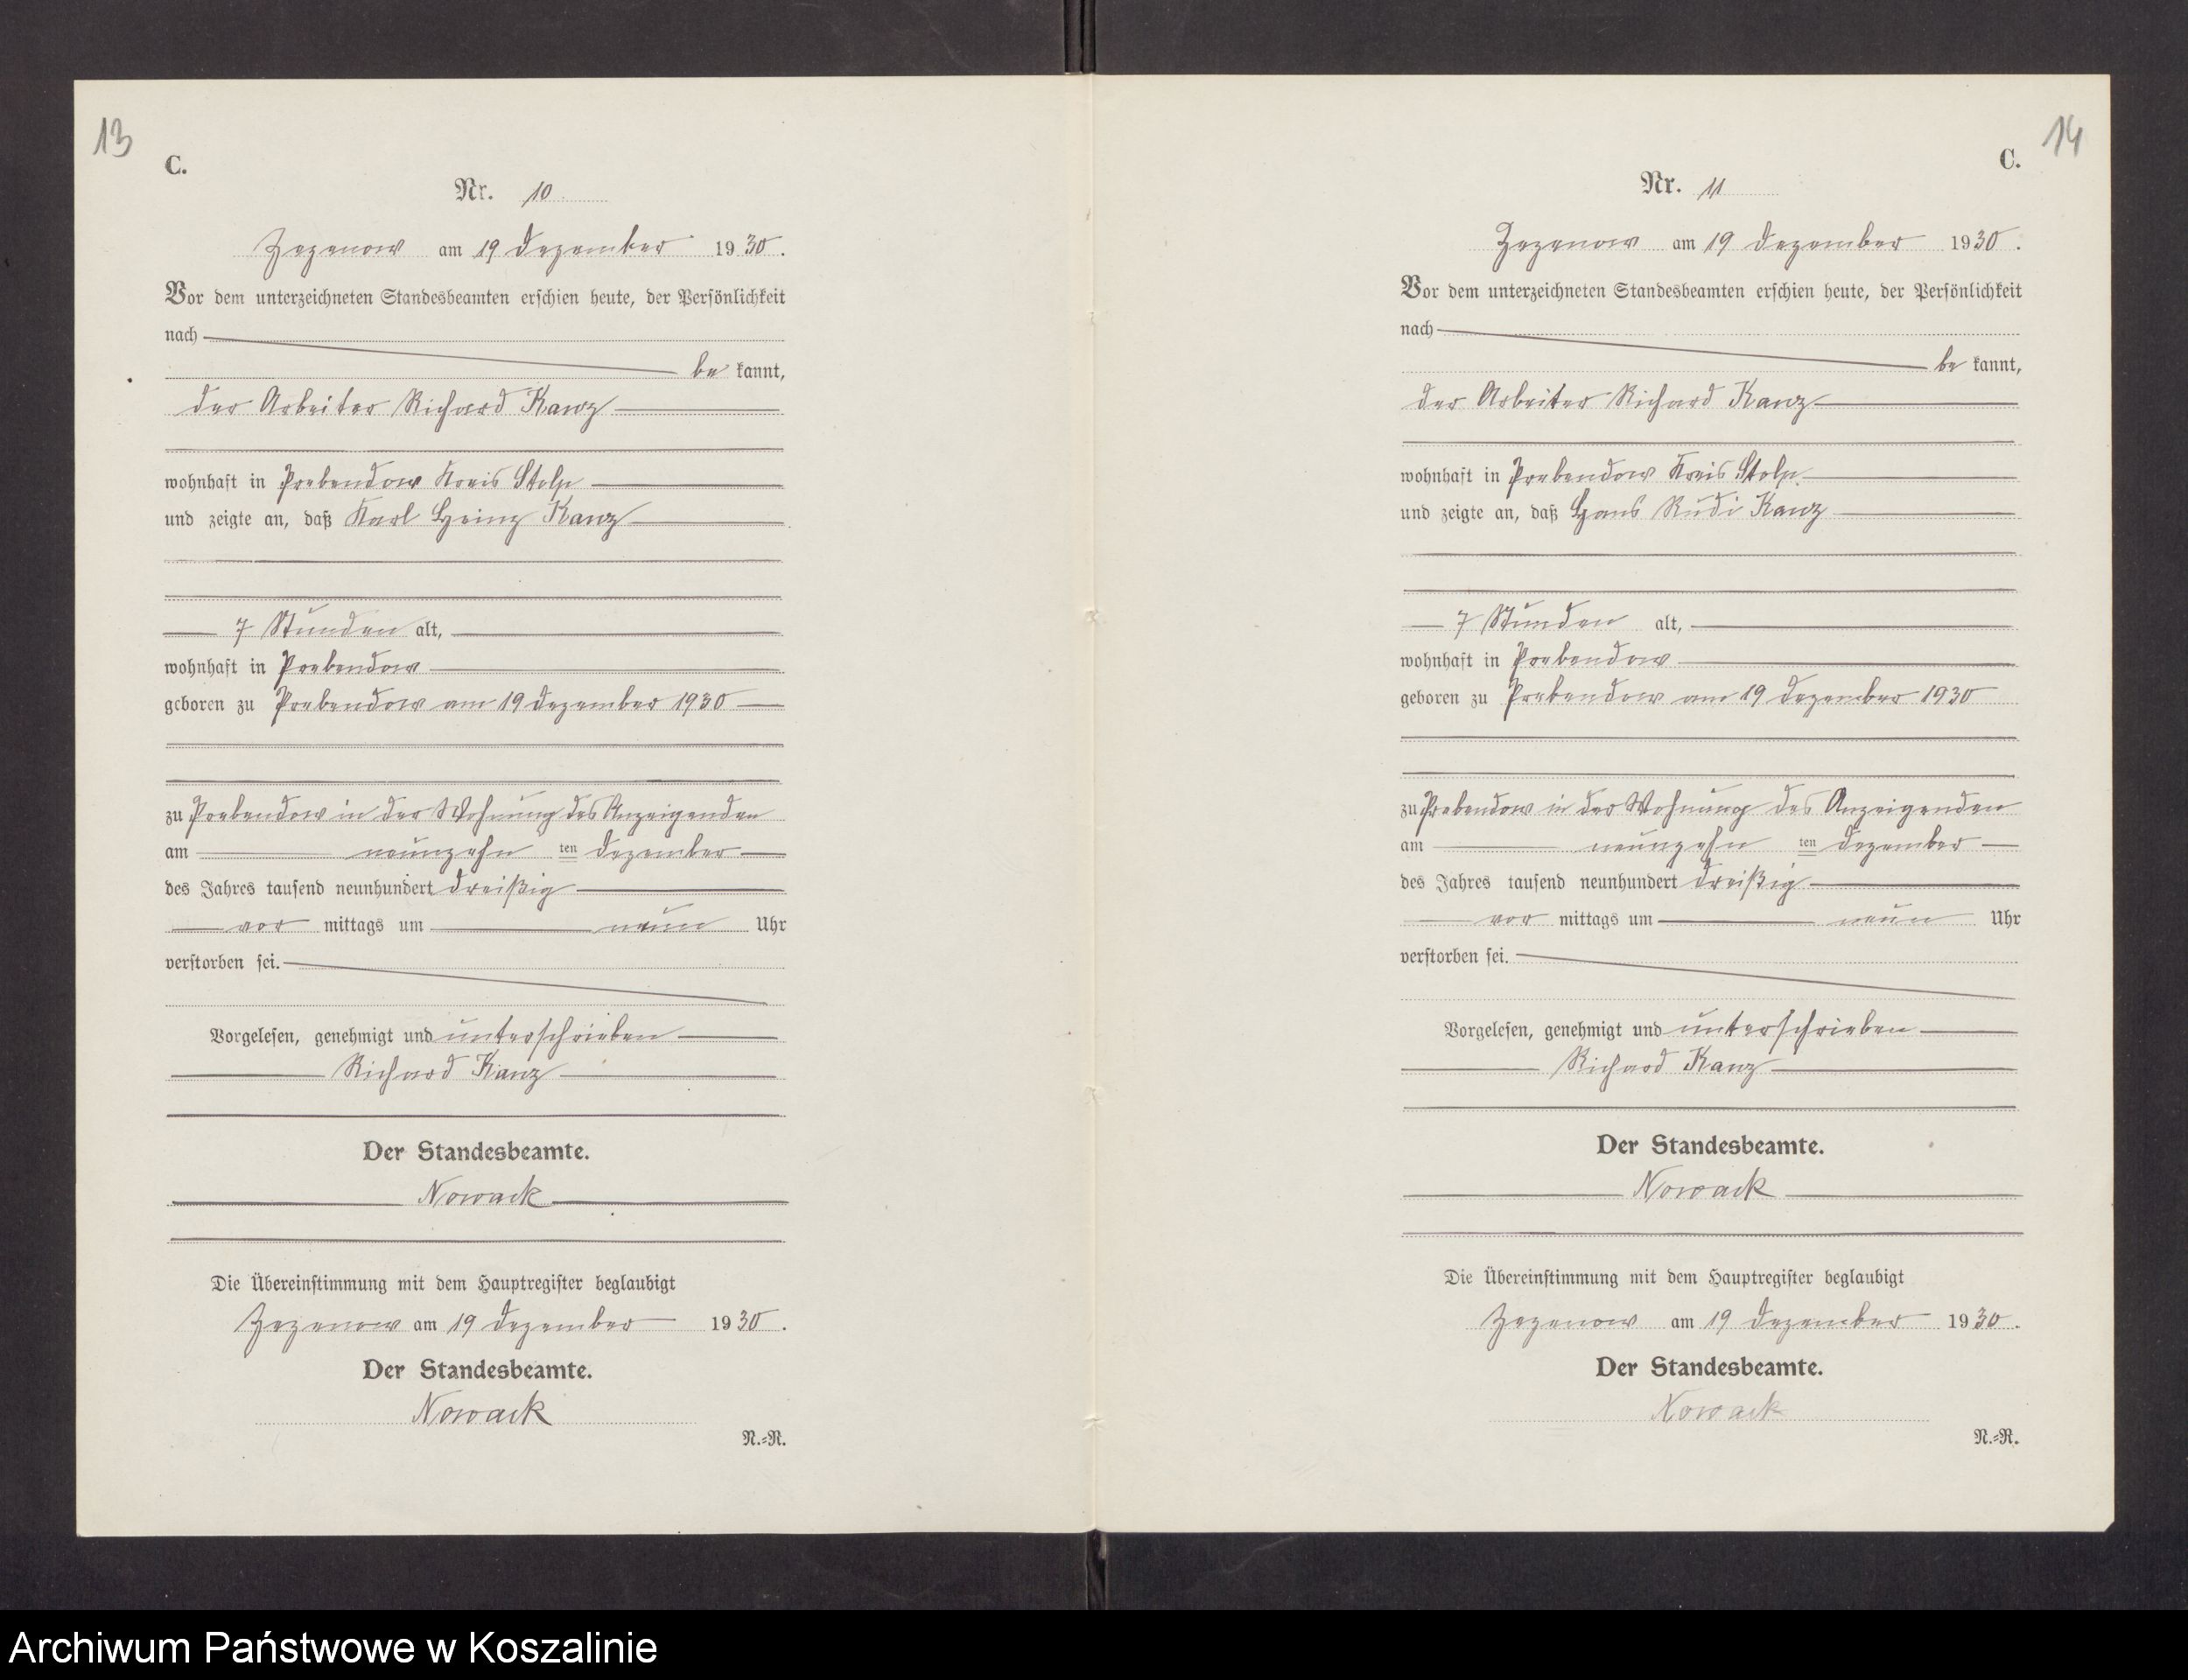 13
C.
Nr. 10
Zezenow am 19 Dezember 1930.
Vor dem unterzeichneten Standesbeamten erschien heute, der Persönlichkeit
nach
be kannt,
der Arbeiter Richard Kanz
wohnhaft in Prebendow Kreis Stolp
und zeigte an, daß Karl Heinz Kanz
7 Stunden alt,
wohnhaft in Prebendow
geboren zu Prebendow am 19 Dezember 1930
zu Prebendow in der Wohnung des Anzeigenden
am neunzehn ten Dezember
des Jahres tausend neunhundert dreißig
vor mittags um neun Uhr
verstorben sei.
Vorgelesen, genehmigt und unterschrieben
Richard Kanz
Der Standesbeamte.
Nowack
Die Übereinstimmung mit dem Hauptregister beglaubigt
Zezenow am 19 Dezember 1930.
Der Standesbeamte.
Nowack
N.=R.
14
C.
Nr. 11
Zezenow am 19 Dezember 1930.
Vor dem unterzeichneten Standesbeamten erschien heute, der Persönlichkeit
nach
be kannt,
der Arbeiter Richard Kanz
wohnhaft in Prebendow Kreis Stolp
und zeigte an, daß Hans Rudi Kanz
7 Stunden alt,
wohnhaft in Prebendow
geboren zu Prebendow am 19 Dezember 1930
zu Prebendow in der Wohnung des Anzeigenden
am neunzehn ten Dezember
des Jahres tausend neunhundert dreißig
vor mittags um neun Uhr
verstorben sei.
Vorgelesen, genehmigt und unterschrieben
Richard Kanz
Der Standesbeamte.
Nowack
Die Übereinstimmung mit dem Hauptregister beglaubigt
Zezenow am 19 Dezember 1930.
Der Standesbeamte.
Nowack
N.=R.
Archiwum Państwowe w Koszalinie